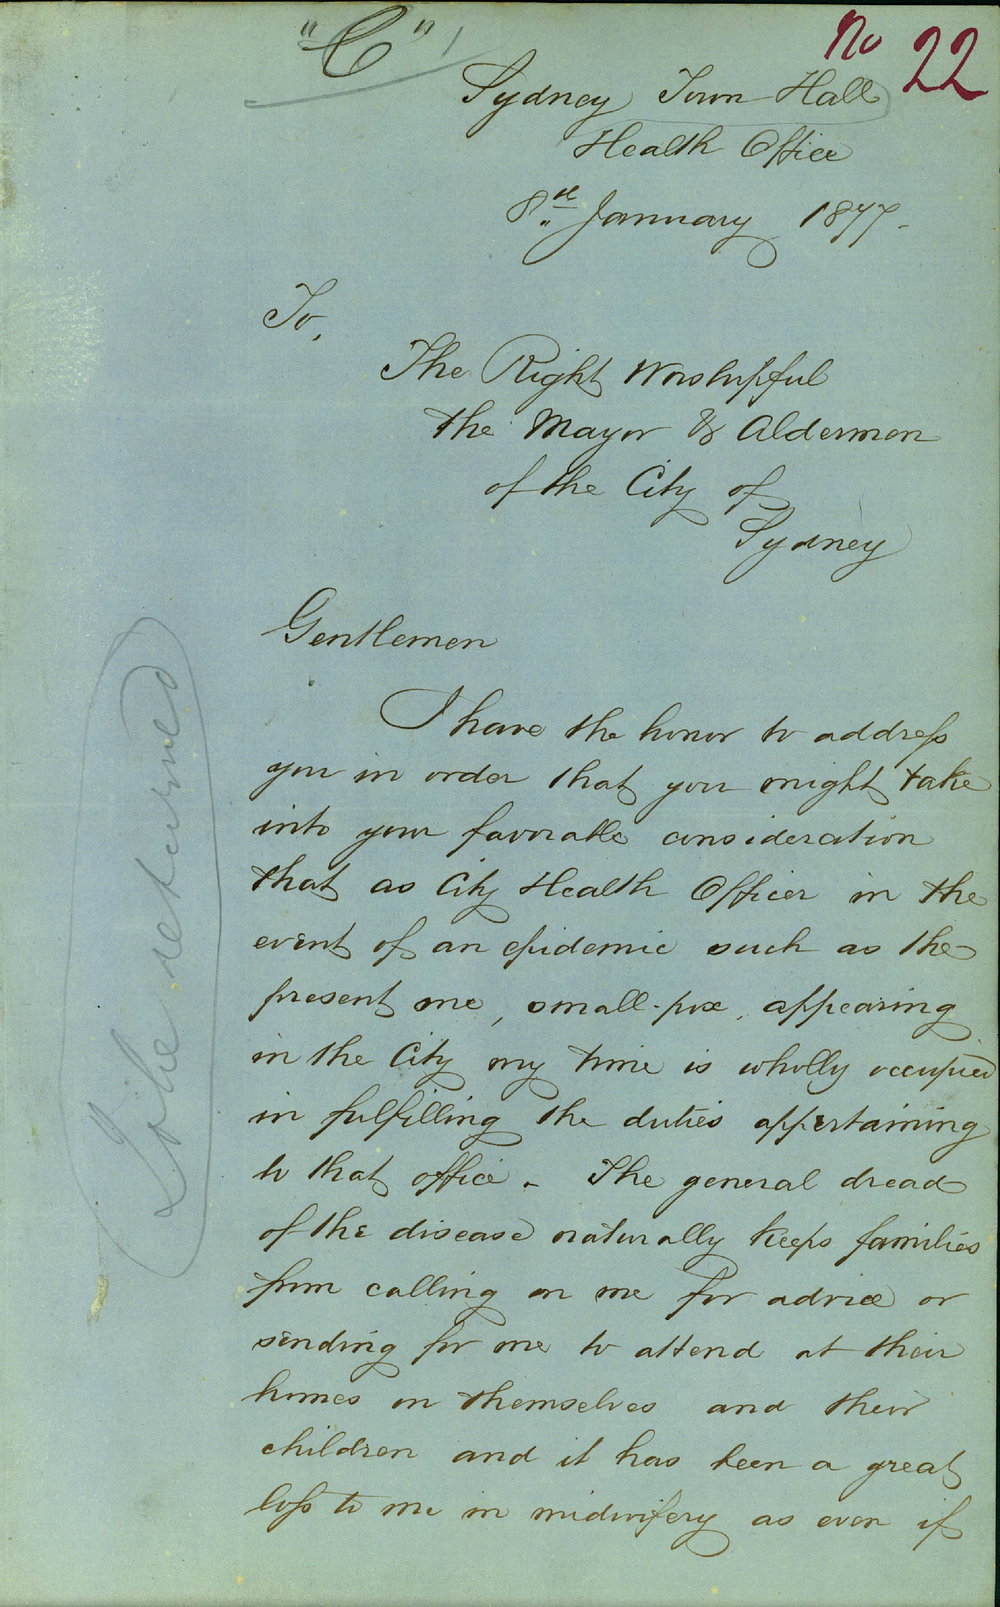 "C"
No 22
Sydney Town Hall
Health Office
8th January 1877.
To,
The Right Worshipful
the Mayor & Aldermen
of the City of
Sydney
Gentlemen
I have the honor to address
you in order that you might take
into your favorable consideration
that as City Health Officer in the
event of an epidemic such as the
present one, small-pox, appearing
in the City my time is wholly occupied
in fulfilling the duties appertaining
to that office. The general dread
of the disease naturally keeps families
from calling on me for advice or
sending for me to attend at their
homes on themselves and their
children and it has been a great
loss to me in midwifery as even if
To be returned